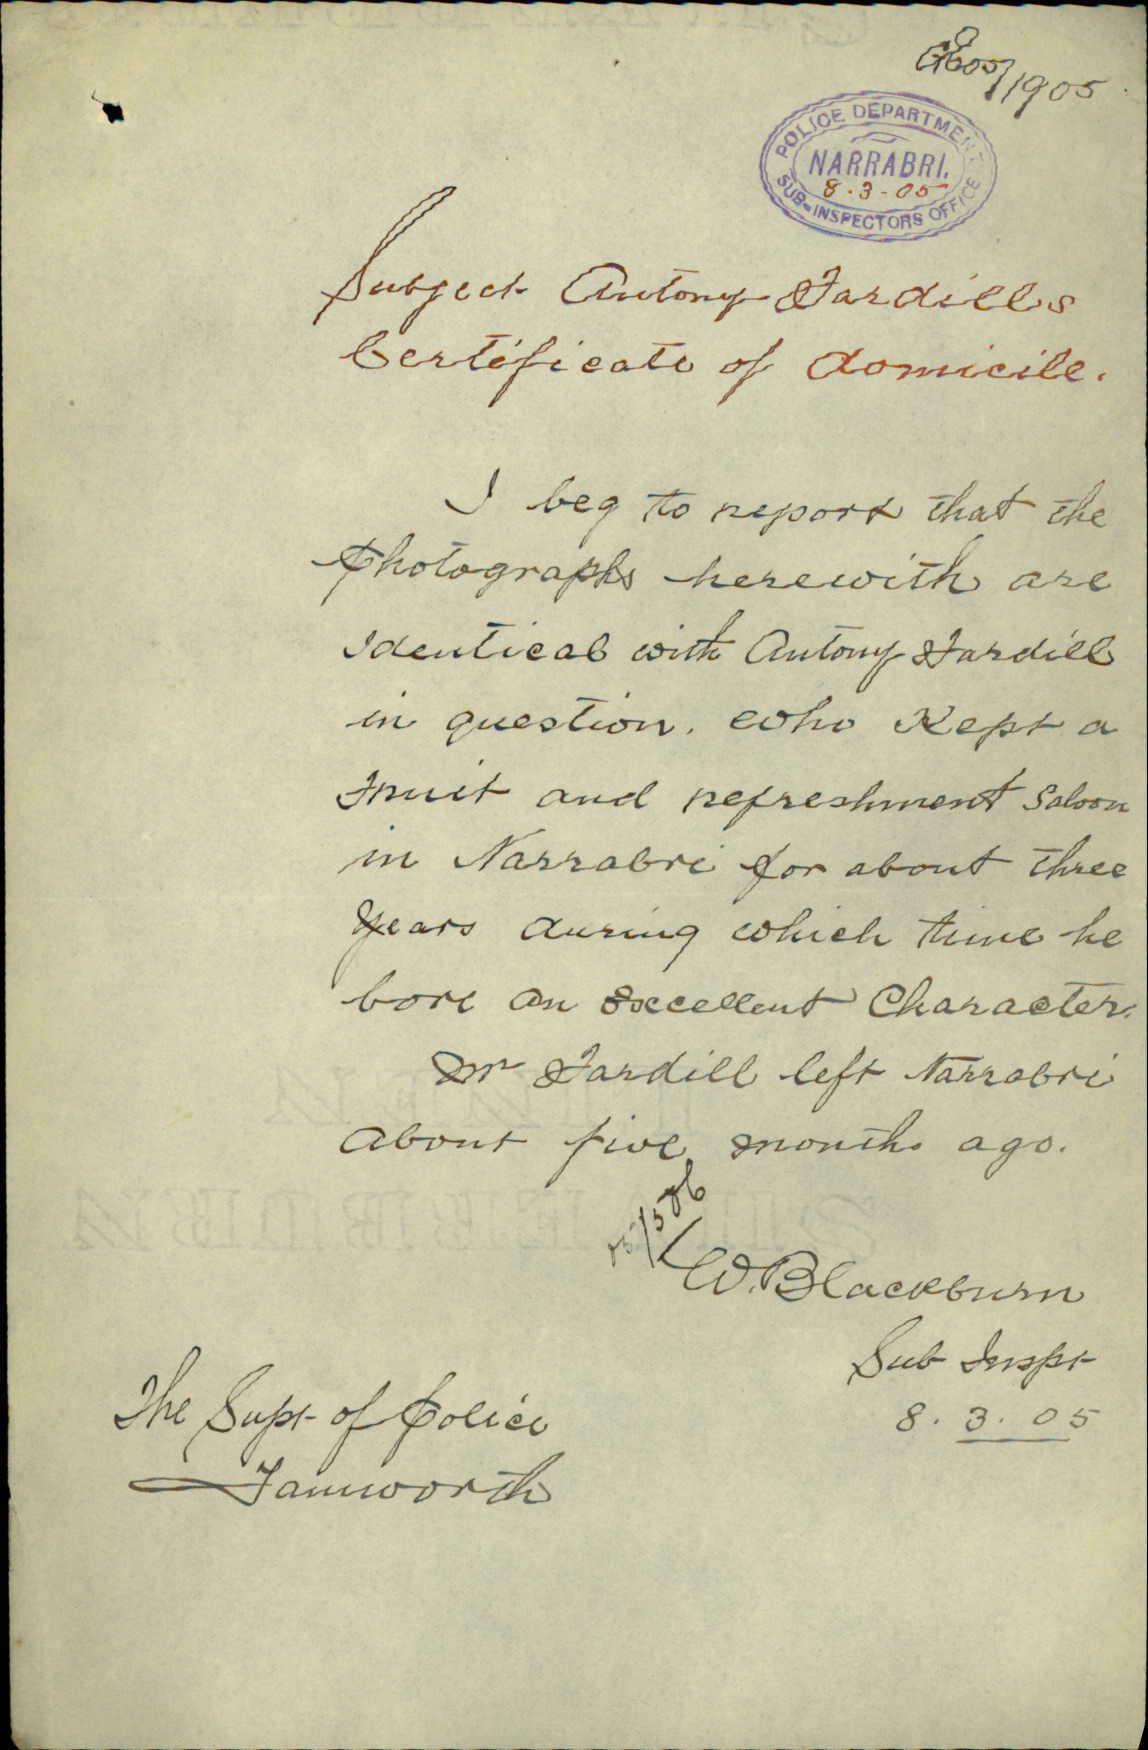 /1905
POLICE DEPARTMENT
NARRABRI.
8.3-05
SUB-INSPECTORS OFFICE
Subject Antony Fardills
Certificate of domicile.
I beg to report that the
Photographs herewith are
identical with Antony Fardill
in question. who Kept a
Fruit and refreshment Saloon
in Narrabri for about three
Years during which time he
bore an Excellent Character.
Mr Fardill left Narrabri
about five months ago.
W. Blackburn
Sub Inspt
8. 3. 05
The Supt of Police
Tamworth